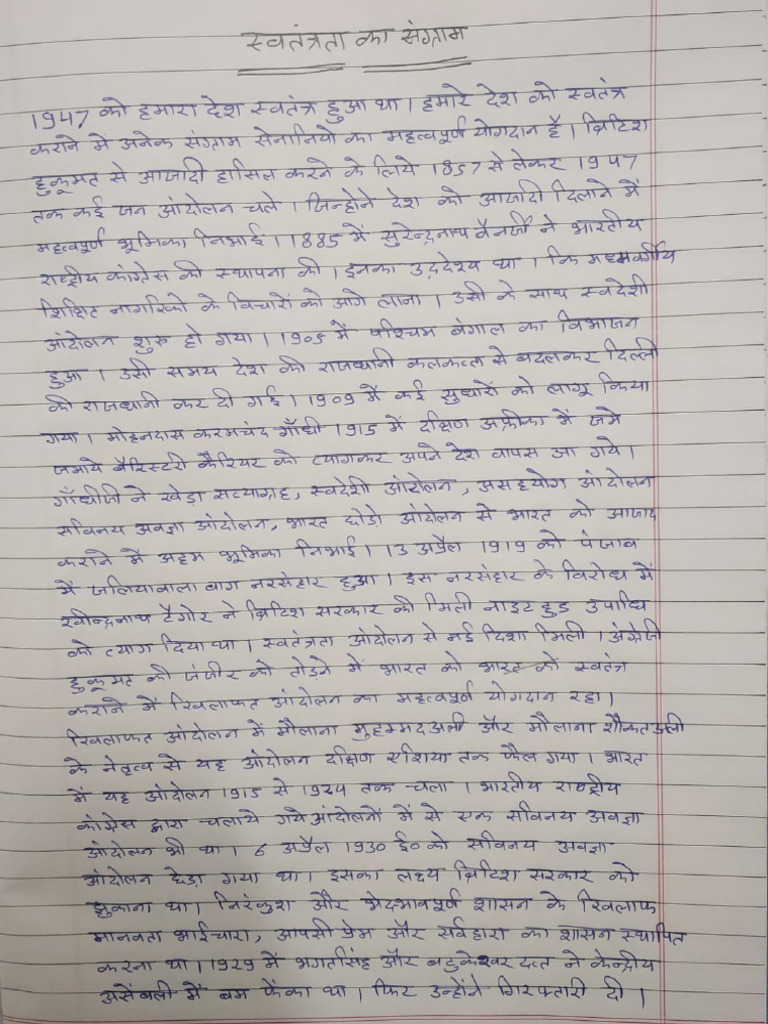 स्वतंत्रता का संग्राम
1947 को हमारा देश स्वतंत्र हुआ था। हमारे देश को स्वतंत्र
कराने में अनेक संग्राम सेनानियो का महत्वपूर्ण योगदान है। ब्रिटिश
हुकूमत से आजादी हासिल करने के लिये 1857 से लेकर 1947
तक कई जन आंदोलन चले। जिन्होने देश को आजादी दिलाने में
महत्वपूर्ण भूमिका निभाई। 1885 में सुरेन्द्रनाथ बैनर्जी ने भारतीय
राष्ट्रीय कांग्रेस की स्थापना की। इनका उद्देश्य था। कि मध्यमवर्गीय
शिक्षित नागरिको के विचारों को आगे लाना। उसी के साथ स्वदेशी
आंदोलन शुरु हो गया। 1905 में पश्चिम बंगाल का विभाजन
हुआ। उसी समय देश की राजधानी कलकत्ता से बदलकर दिल्ली
को राजधानी कर दी गई। 1909 में कई सुधारों को लागू किया
गया। मोहनदास करमचंद गाँधी 1915 में दक्षिण अफ्रीका में जमे
जमाये बैरिस्टरी कैरियर को त्यागकर अपने देश वापस आ गये।
गाँधीजी ने खेड़ा सत्याग्रह, स्वदेशी आंदोलन, असहयोग आंदोलन
सविनय अवज्ञा आंदोलन, भारत छोडो आंदोलन से भारत को आजाद
कराने में अहम भूमिका निभाई। 13 अप्रैल 1919 को पंजाब
में जलियावाला बाग नरसंहार हुआ। इस नरसंहार के विरोध में
रवीन्द्रनाथ टैगोर ने ब्रिटिश सरकार की मिली नाइट हुड उपाधि
को त्याग दिया था। स्वतंत्रता आंदोलन से नई दिशा मिली। अंग्रेजी
हुकूमत की जंजीर को तोड़ने में भारत को भारत को स्वतंत्र
कराने में खिलाफत आंदोलन का महत्वपूर्ण योगदान रहा।
खिलाफत आंदोलन में मौलाना मुहम्मद अली और मौलाना शौकत अली
के नेतृत्व से यह आंदोलन दक्षिण एशिया तक फैल गया। भारत
में यह आंदोलन 1915 से 1924 तक चला। भारतीय राष्ट्रीय
कांग्रेस द्वारा चलाये गये आंदोलनों में से एक सविनय अवज्ञा
आंदोलन भी था। 6 अप्रैल 1930 ई० को सविनय अवज्ञा
आंदोलन छेड़ा गया था। इसका लक्ष्य ब्रिटिश सरकार को
झुकाना था। निरंकुश और भेदभावपूर्ण शासन के खिलाफ
मानवता भाईचारा, आपसी प्रेम और सर्वहारा का शासन स्थापित
करना था। 1929 में भगतसिंह और बटुकेश्वर दत्त ने केन्द्रीय
असेंबली में बम फेंका था। फिर उन्होंने गिरफ्तारी दी।